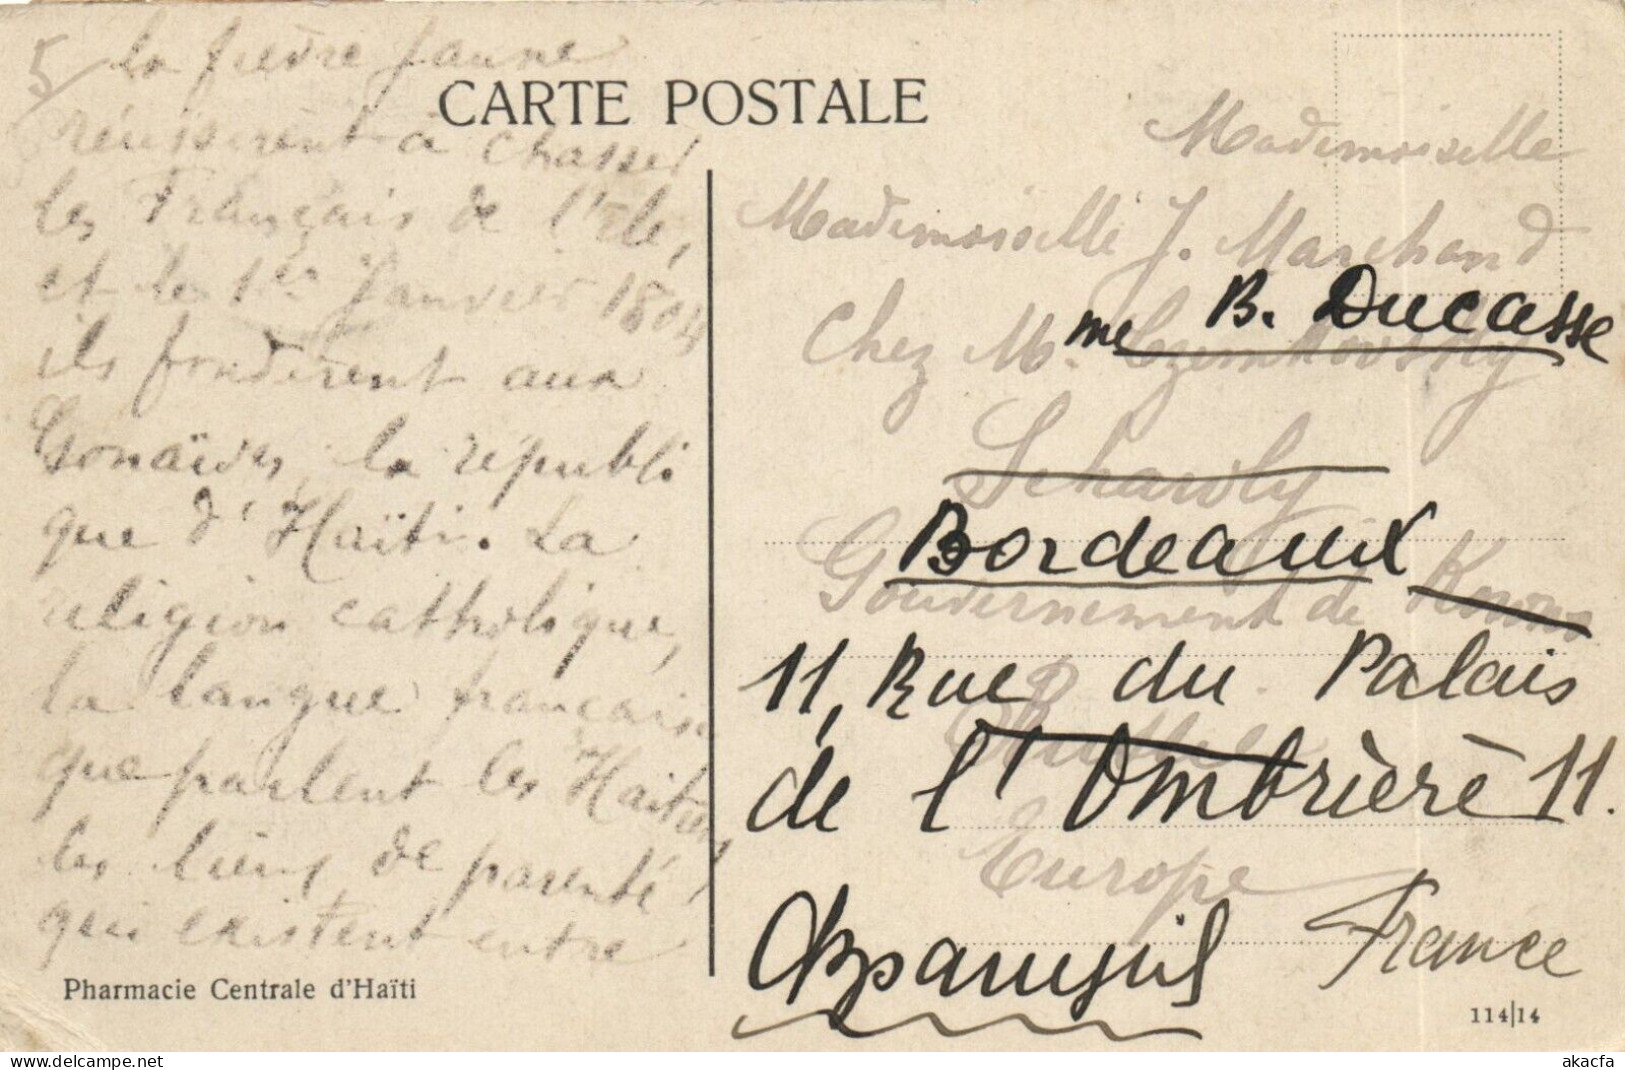 5/ la fièvre jaune
réussirent à chasser
les Français de l'Ile,
et le 1er Janvier 1804
ils fondèrent aux
Gonaïves, la républi
que d'Haïti. La
religion catholique,
la langue française
que parlent les Haitiens,
les liens de parenté
qui existent entre
Pharmacie Centrale d'Haïti
CARTE POSTALE
Mademoiselle
Mademoiselle J. Marchand
B. Ducasse
Chez Mme
Bordeaux
Gouvernement de
11, Rue du Palais
de l'Ombrière 11.
Europe
France
114|14
akacfa